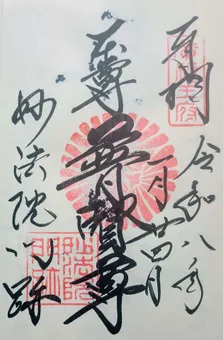 奉拝
令和八年
一月廿四日
本尊
普賢尊
妙法院門跡